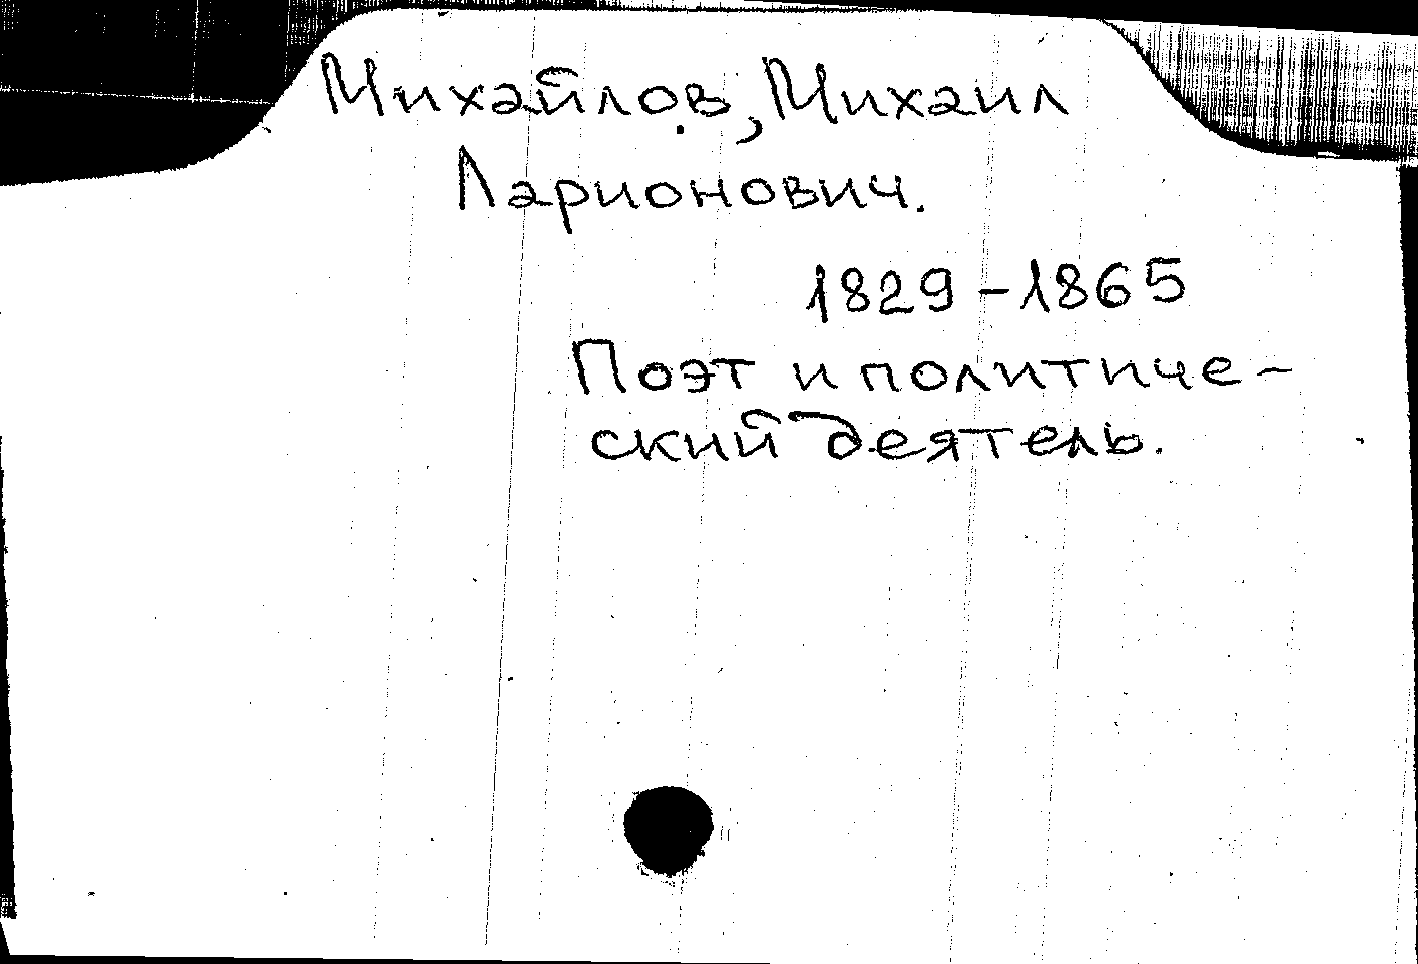 Михайлов, Михаил
Ларионович.
1829-1865
Поэт и политиче-
ский деятель.